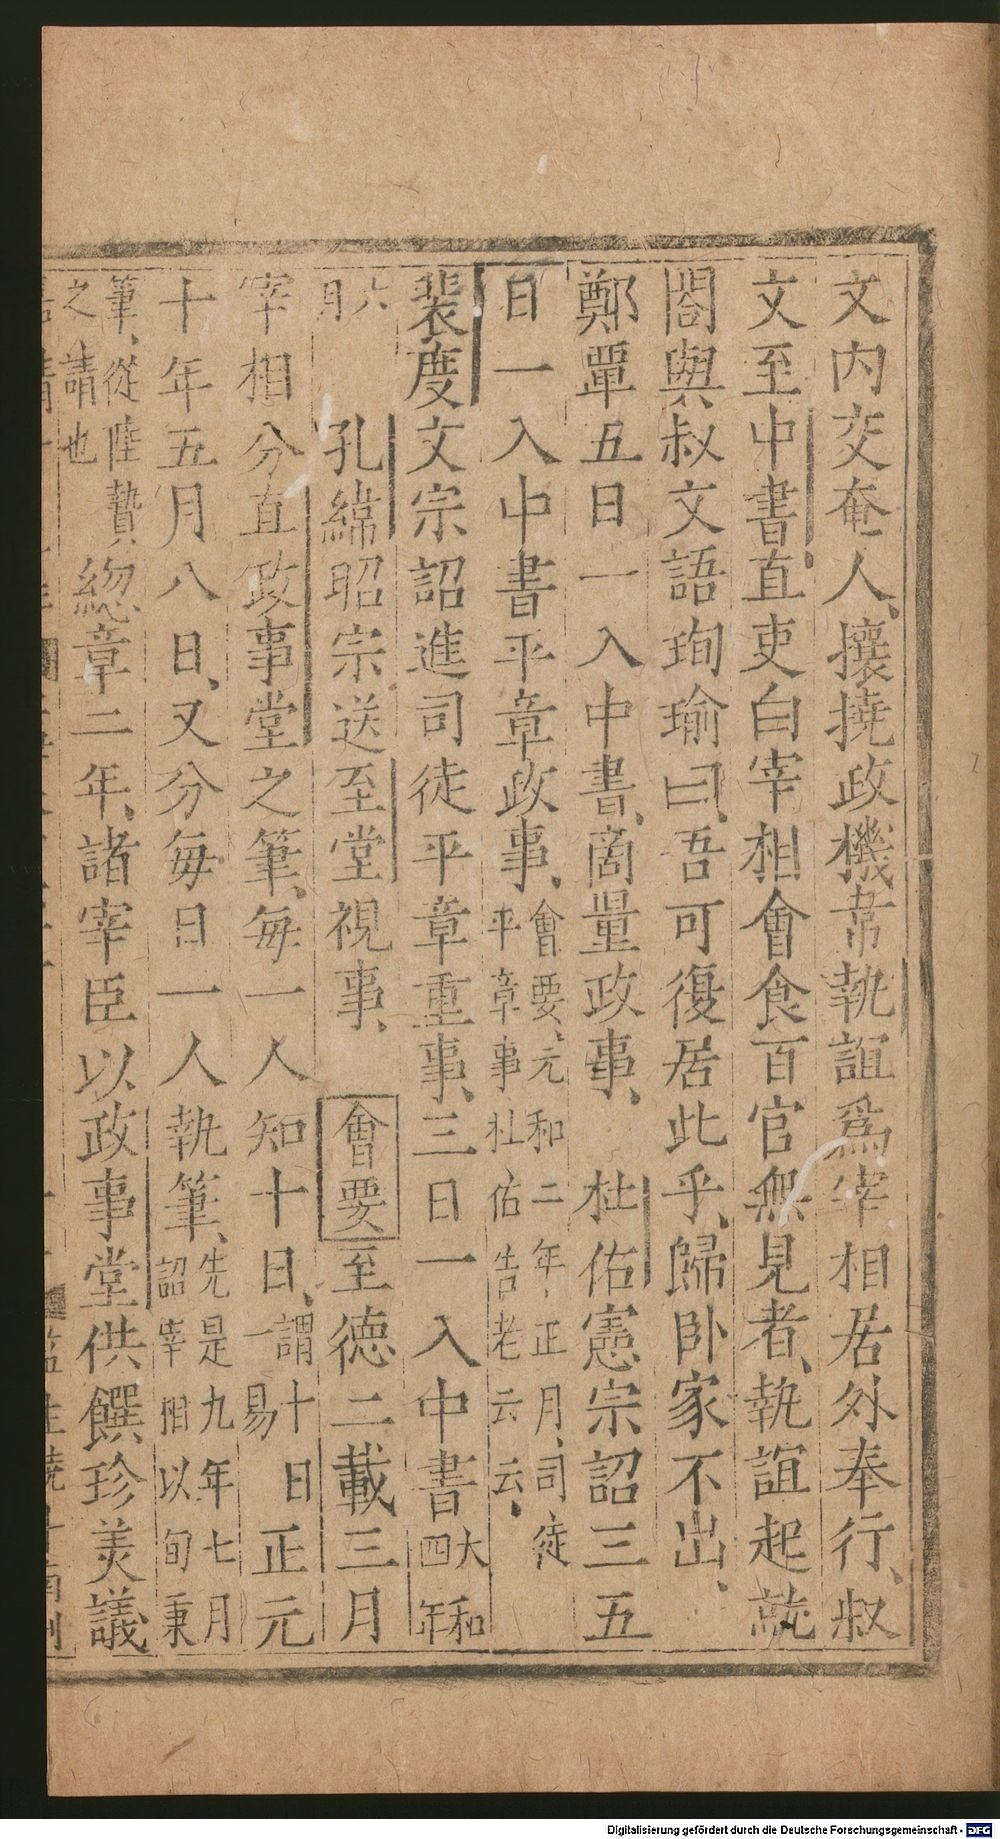 文内交奄人、攘撓政機韋執誼爲宰相居外奉行、叔
文至中書直吏白宰相會食百官無見者、執誼起就
閤與叔文語珣瑜曰、吾可復居此乎、歸卧家不出、
鄭覃五日一入中書、商量政事、 杜佑憲宗詔三五
日一入中書平章政事、會要、元和二年正月、司徒平章事杜佑告老云云、
裴度文宗詔進司徒平章重事、三日一入中書大和四年
六月 孔緯昭宗送至堂視事、 會要至德二載三月
宰相分直政事堂之筆、每一人知十日、謂十日一易正元
十年五月八日、又分每日一人執筆、先是九年七月詔宰相以旬秉
筆、從陸贄之請也總章二年、諸宰臣以政事堂供饌珍美議
Digitalisierung gefördert durch die Deutsche Forschungsgemeinschaft - DFG